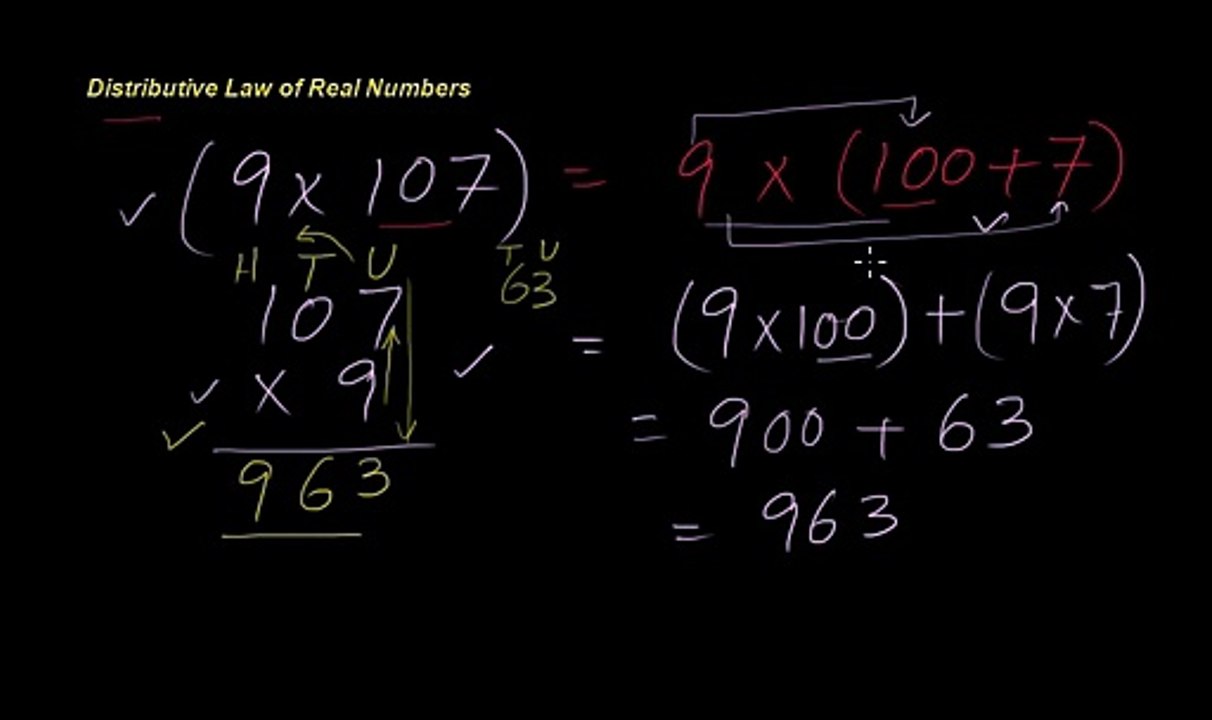 Distributive Law of Real Numbers
(9 x 107) = 9 x (100 + 7)
H T U
T U
63
107
x 9
963
= (9 x 100) + (9 x 7)
= 900 + 63
= 963